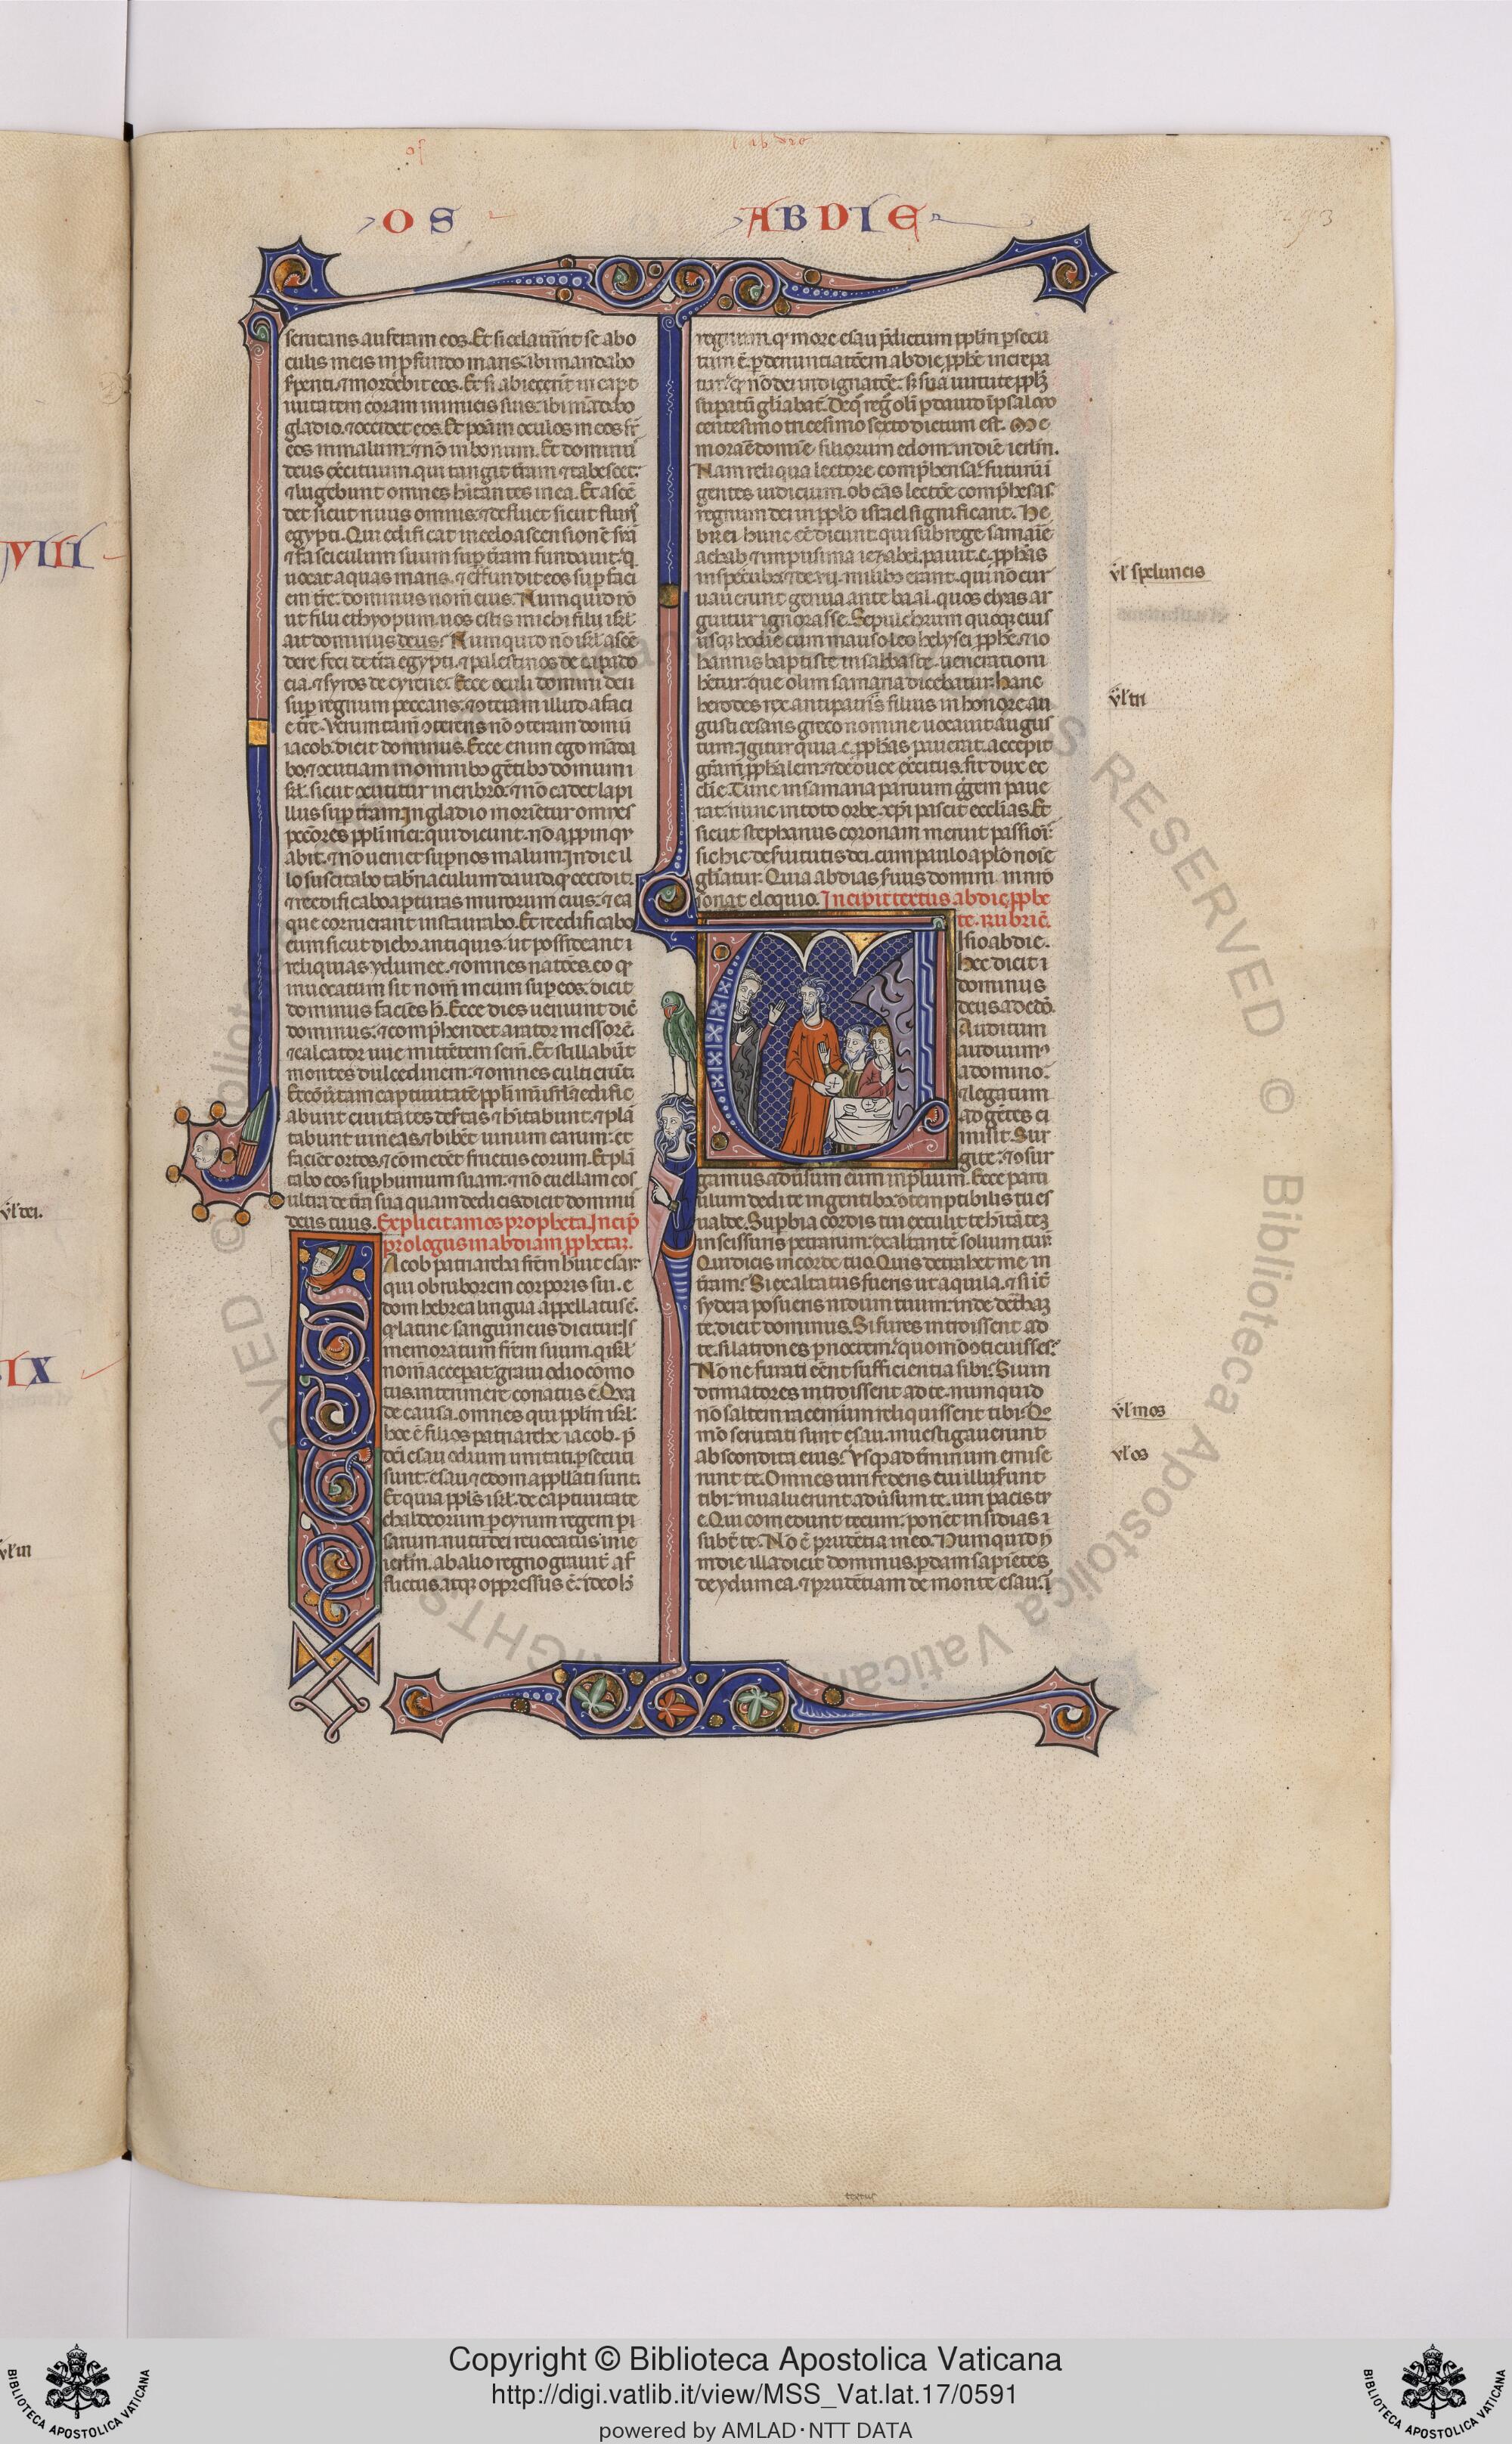 OS
ABDIE
scrutans auferam eos. Et si celauerint se ab o
culis meis in profundo maris: ibi mandabo
serpenti & mordebit eos. Et si abierint in capti
uitatem coram inimicis suis: ibi mandabo
gladio. & occidet eos. Et ponam oculos meos super
eos in malum: & non in bonum. Et dominus
deus exercituum. qui tangit terram & tabescet:
& lugebunt omnes habitantes in ea. Et ascen
det sicut riuus omnis. & defluet sicut fluuius
egypti. Qui edificat in celo ascensionem suam
& fasciculum suum super terram fundauit. qui
uocat aquas maris. & effundit eos super faci
em terre: dominus nomen eius. Numquid non
ut filii ethyopum. uos estis michi filii israel
ait dominus deus. Numquid non israel ascen
dere feci de terra egypti. & palestinos de capado
cia. & syros de cyrene. Ecce oculi domini dei
super regnum peccans. & conteram illud a faci
e terre. Verum tamen conterens non conteram domum
iacob. dicit dominus. Ecce enim ego manda
bo. & concutiam in omnibus gentibus domum i
srael. sicut concutitur in cribro. & non cadet lapi
llus super terram. In gladio morientur omnes
peccatores populi mei. qui dicunt. non appropinqu
abit. & non ueniet super nos malum. In die il
lo suscitabo tabernaculum dauid. quod cecidit.
& reedificabo aperturas murorum eius. & ea
que corruerant instaurabo. Et reedificabo
eum sicut diebus antiquis. ut possideant
reliquias ydumee. & omnes nationes. eo quod
inuocatum sit nomen meum super eos. dicit
dominus faciens hec. Ecce dies ueniunt dicit
dominus. & comprehendet arator messorem.
& calcator uue mittentem semen. Et stillabunt
montes dulcedinem: & omnes culti erunt.
Et conuertam captiuitatem populi mei israel. & edific
abunt ciuitates desertas & habitabunt. & plan
tabunt uineas. & bibent uinum earum: et
facient ortos. & comedent fructus eorum. Et plan
tabo eos super humum suam: & non euellam eos
ultra de terra sua quam dedi eis dicit dominus
deus tuus. Explicit amos propheta. Incipit
prologus in abdiam prophetam.
Iacob patriarcha fratrem habuit esau:
qui ob ruborem corporis sui. e
dom hebrea lingua appellatus est.
quod latine sanguineus dicitur. Is
memoratum fratrem suum. qui israel
nomen acceperat: graui odio commo
tus. interimere conatus est. Qua
de causa. omnes qui populum israel.
hoc est filios patriarche iacob. pro
dei esau odium imitati. persecuti
sunt: esau & edom appellati sunt.
Et quia populus israel. de captiuitate
chaldeorum per cyrum regem per
sarum. nutu dei reuocatus in ie
rusalem. ab alio regno grauiter af
flictus. atque oppressus est. ideo hoc
regnum. quod more esau predictum populum persecu
tum est. per denunciationem abdie prophete increpa
tur: quod non dei indignatione: sed sua uirtute populum
superatum
centesimo tricesimo sexto dictum est. Me
morare domine filiorum edom. in die ierusalem.
Nam reliqua lectore comprehensa: futurum
gentes iudicium. ob eas lectione comprehensas
regnum dei in populo israel significant. He
brei hunc esse dicunt. qui sub rege samarie
achab & impiissima iezabel. pauit. c. prophetas
in specubus. & de vii. milibus erant. qui non cur
uauerunt genua ante baal. quos elyas ar
guitur ignorasse. Sepulchrum quoque eius
usque hodie cum mausoleo helysei prophete. & io
hannis baptiste in sabbaste. uenerationi
habetur. que olim samaria dicebatur. Hanc
herodes rex antipatris filius in honore au
gusti cesaris. greco nomine uocauit augus
tum. Igitur quia. c. prophetas pauerat. accepit
gratiam prophetalem. & de duce exercitus. fit dux ec
clesie. Tunc in samaria paruum gregem paue
rat. nunc in toto orbe. christi pascit ecclesias. Et
sicut stephanus coronam meruit passionis:
sic hic de seruitutis dei. cum paulo apostolo nomine
gloriatur. Quia abdias seruus domini in nostro
sonat eloquio. Incipit textus abdie prophe
te. Rubrica.
Visio abdie.
Hec dicit
dominus
deus ad edom.
Auditum
audiuimus
a domino:
& legatum
ad gentes
misit. Sur
gite: & consur
gamus aduersum eum in prelium. Ecce paru
ulum dedi te in gentibus: contemptibilis tu es
ualde. Superbia cordis tui extulit te habitantem
in scissuris petrarum: exaltantem solium tuum.
Qui dicis in corde tuo. Quis detrahet me in
terram. Si exaltatus fueris ut aquila. & si inter
sydera posueris nidum tuum: inde detraham
te. dicit dominus. Si fures introissent ad
te. si latrones per noctem: quomodo conticuisses?
Nonne furati essent sufficientia sibi. Si uin
dimiatores introissent ad te. numquid
non saltem racemum reliquissent tibi. Quo
modo scrutati sunt esau. inuestigauerunt
abscondita eius. Vsque ad terminum emise
runt te. Omnes uiri federis tui illuserunt
tibi: inualuerunt aduersum te. uiri pacis tu
e. Qui comedunt tecum: ponent insidias
subter te. Non est prudentia in eo. Numquid non
in die illa dicit dominus. perdam sapientes
de ydumea. & prudentiam de monte esau.
vel speluncis
vel mos
vel os
VIII
IX
Copyright © Biblioteca Apostolica Vaticana
http://digi.vatlib.it/view/MSS_Vat.lat.17/0591
powered by AMLAD·NTT DATA
BIBLIOTECA APOSTOLICA VATICANA
BIBLIOTECA APOSTOLICA VATICANA